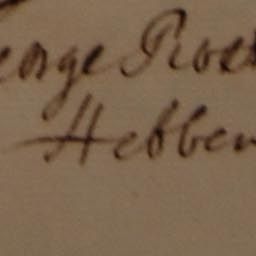 eorge Rob
Hebber